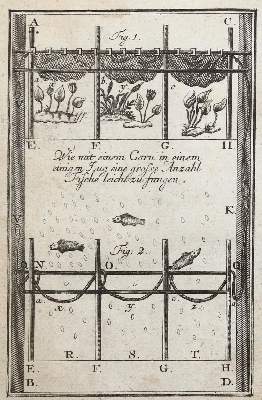 A. C.
Fig. 1.
E. F. G. H
Wie mit einem Garn in einem
einigen Zug eine grosse Anzahl
Fische leicht zu fangen.
K.
Fig. 2.
N O P Q
x y z
R. S. T.
E. F. G. H.
B. D.